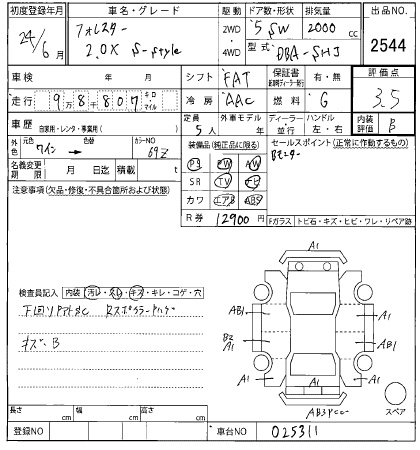 初度登録年月 車名・グレード 駆動 ドア数・形状 排気量 出品NO.
24/6月 フォレスター 2WD 5 SW 2000 cc 2544
2.0X S-style 4WD 型式 DBA-SHJ
車検 年 月 シフト FAT 保証書 有・無 評価点
走行 98807 キロ マイル 冷房 AAC 燃料 G 3.5
車歴 自家用・レンタ・事業用( ) 定員 5人 外車モデル 年 ディーラー・並行 ハンドル 左・右 内装評価 B
外色 元色 ワイン → 色替 カラーNO 69Z 装備品(純正品に限る) セールスポイント(正常に作動するもの)
名義変更期限 月 日迄 積載 t PS PW AW
注意事項(欠品・修復・不具合箇所および状態) SR TV ナビ
カワ エアB ABS
R券 12900円 Fガラス トビ石・キズ・ヒビ・ワレ・リペア跡
A1
A1 A1
AB1 A1
検査員記入 内装 汚レ・スレ・キズ・キレ・コゲ・穴
B2 A1 AB1
キズ・B
A1 A1
スペア
長さ cm 幅 cm 高さ cm
登録NO 車台NO 025311